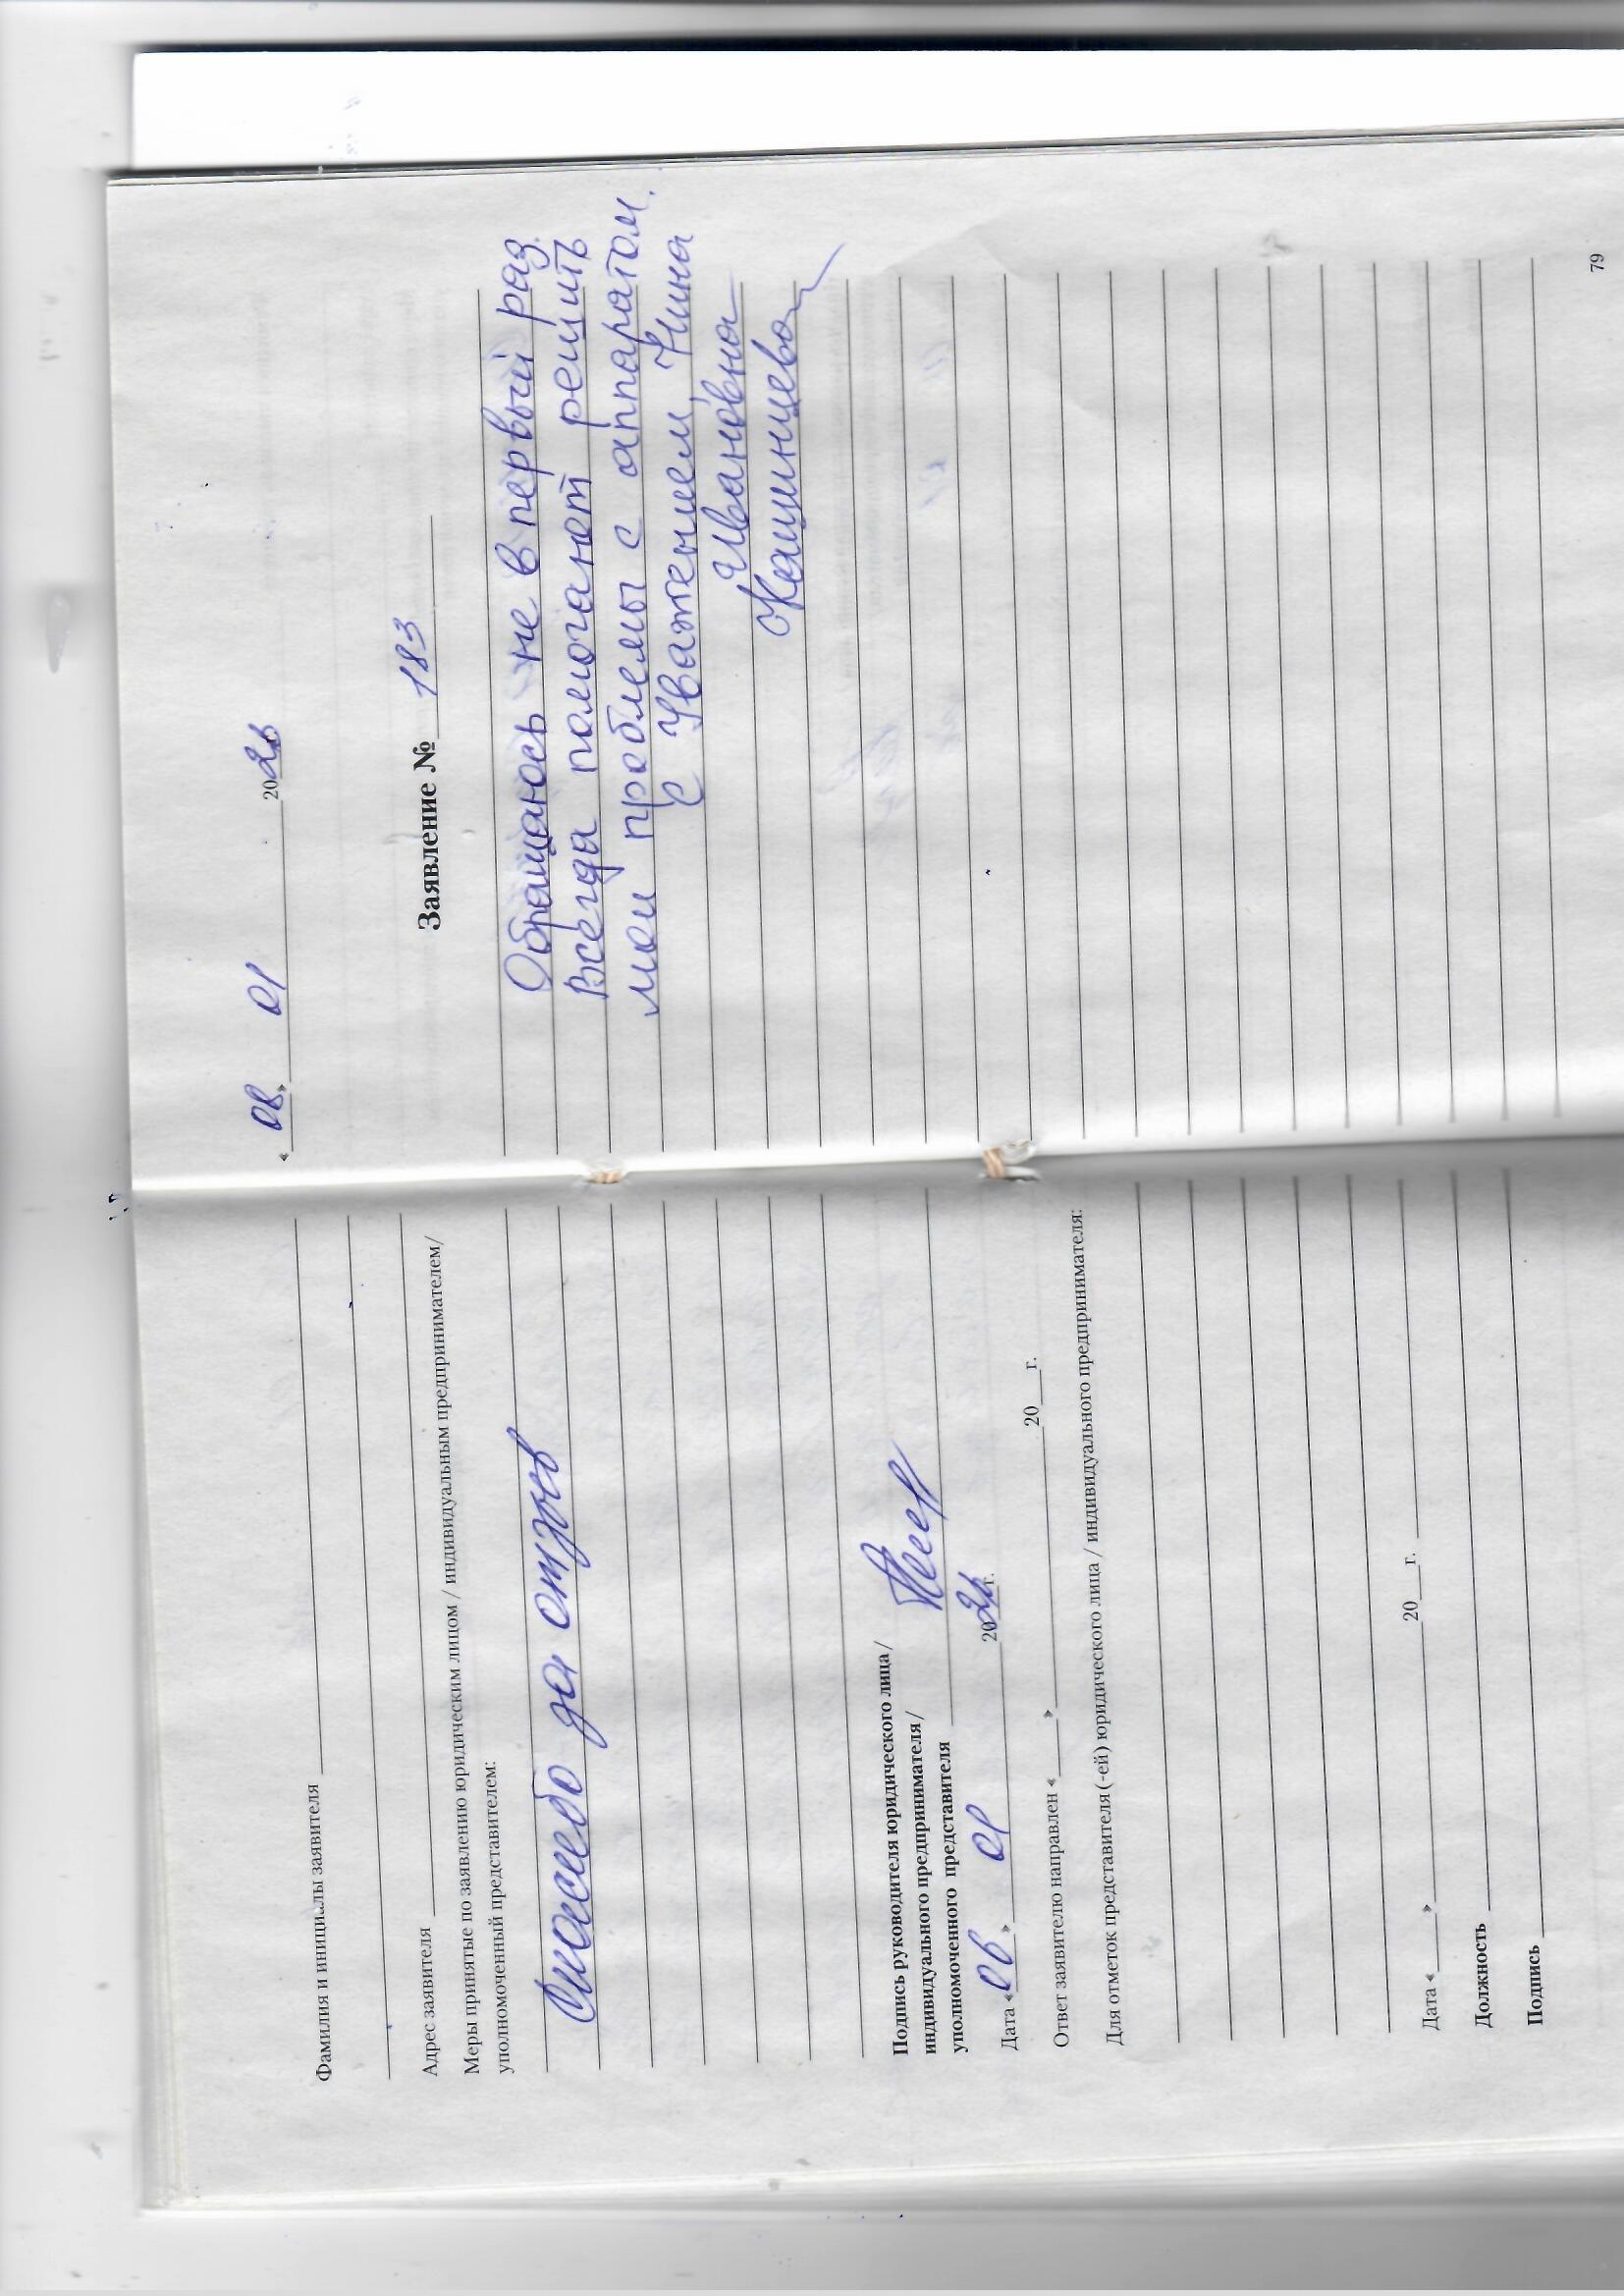 Фамилия и инициалы заявителя
Адрес заявителя
Меры принятые по заявлению юридическим лицом / индивидуальным предпринимателем/
уполномоченный представителем:
Спасибо за отзыв
Подпись руководителя юридического лица/
индивидуального предпринимателя/
уполномоченного представителя
Дата « 08 » 01 2026 г.
Ответ заявителю направлен « » 20 г.
Для отметок представителя (-ей) юридического лица / индивидуального предпринимателя:
Дата « » 20 г.
Должность
Подпись
« 08 » 01 2026
Заявление № 183
Обращаюсь не в первый раз.
Всегда помогают решить
мои проблемы с аппаратом.
С Уважением, Нина
Ивановна
79